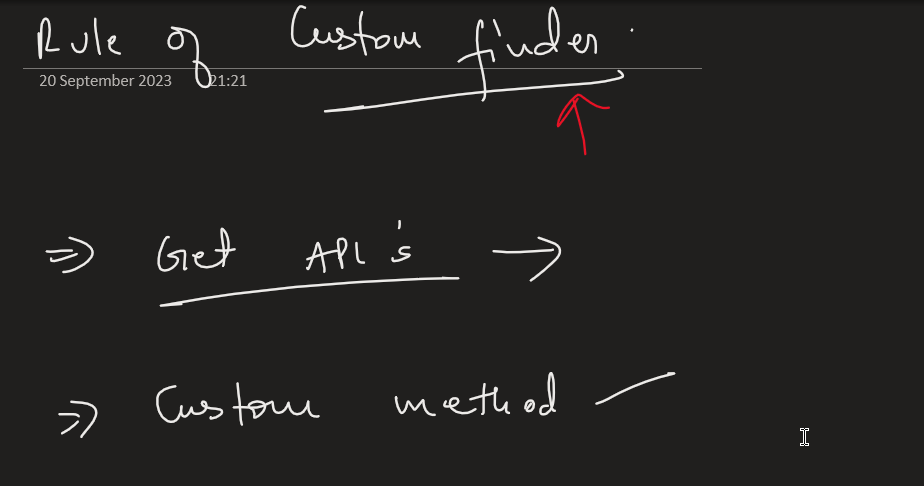 Rule of Custom finder.
20 September 2023 21:21
⇒ Get API's →
⇒ Custom method